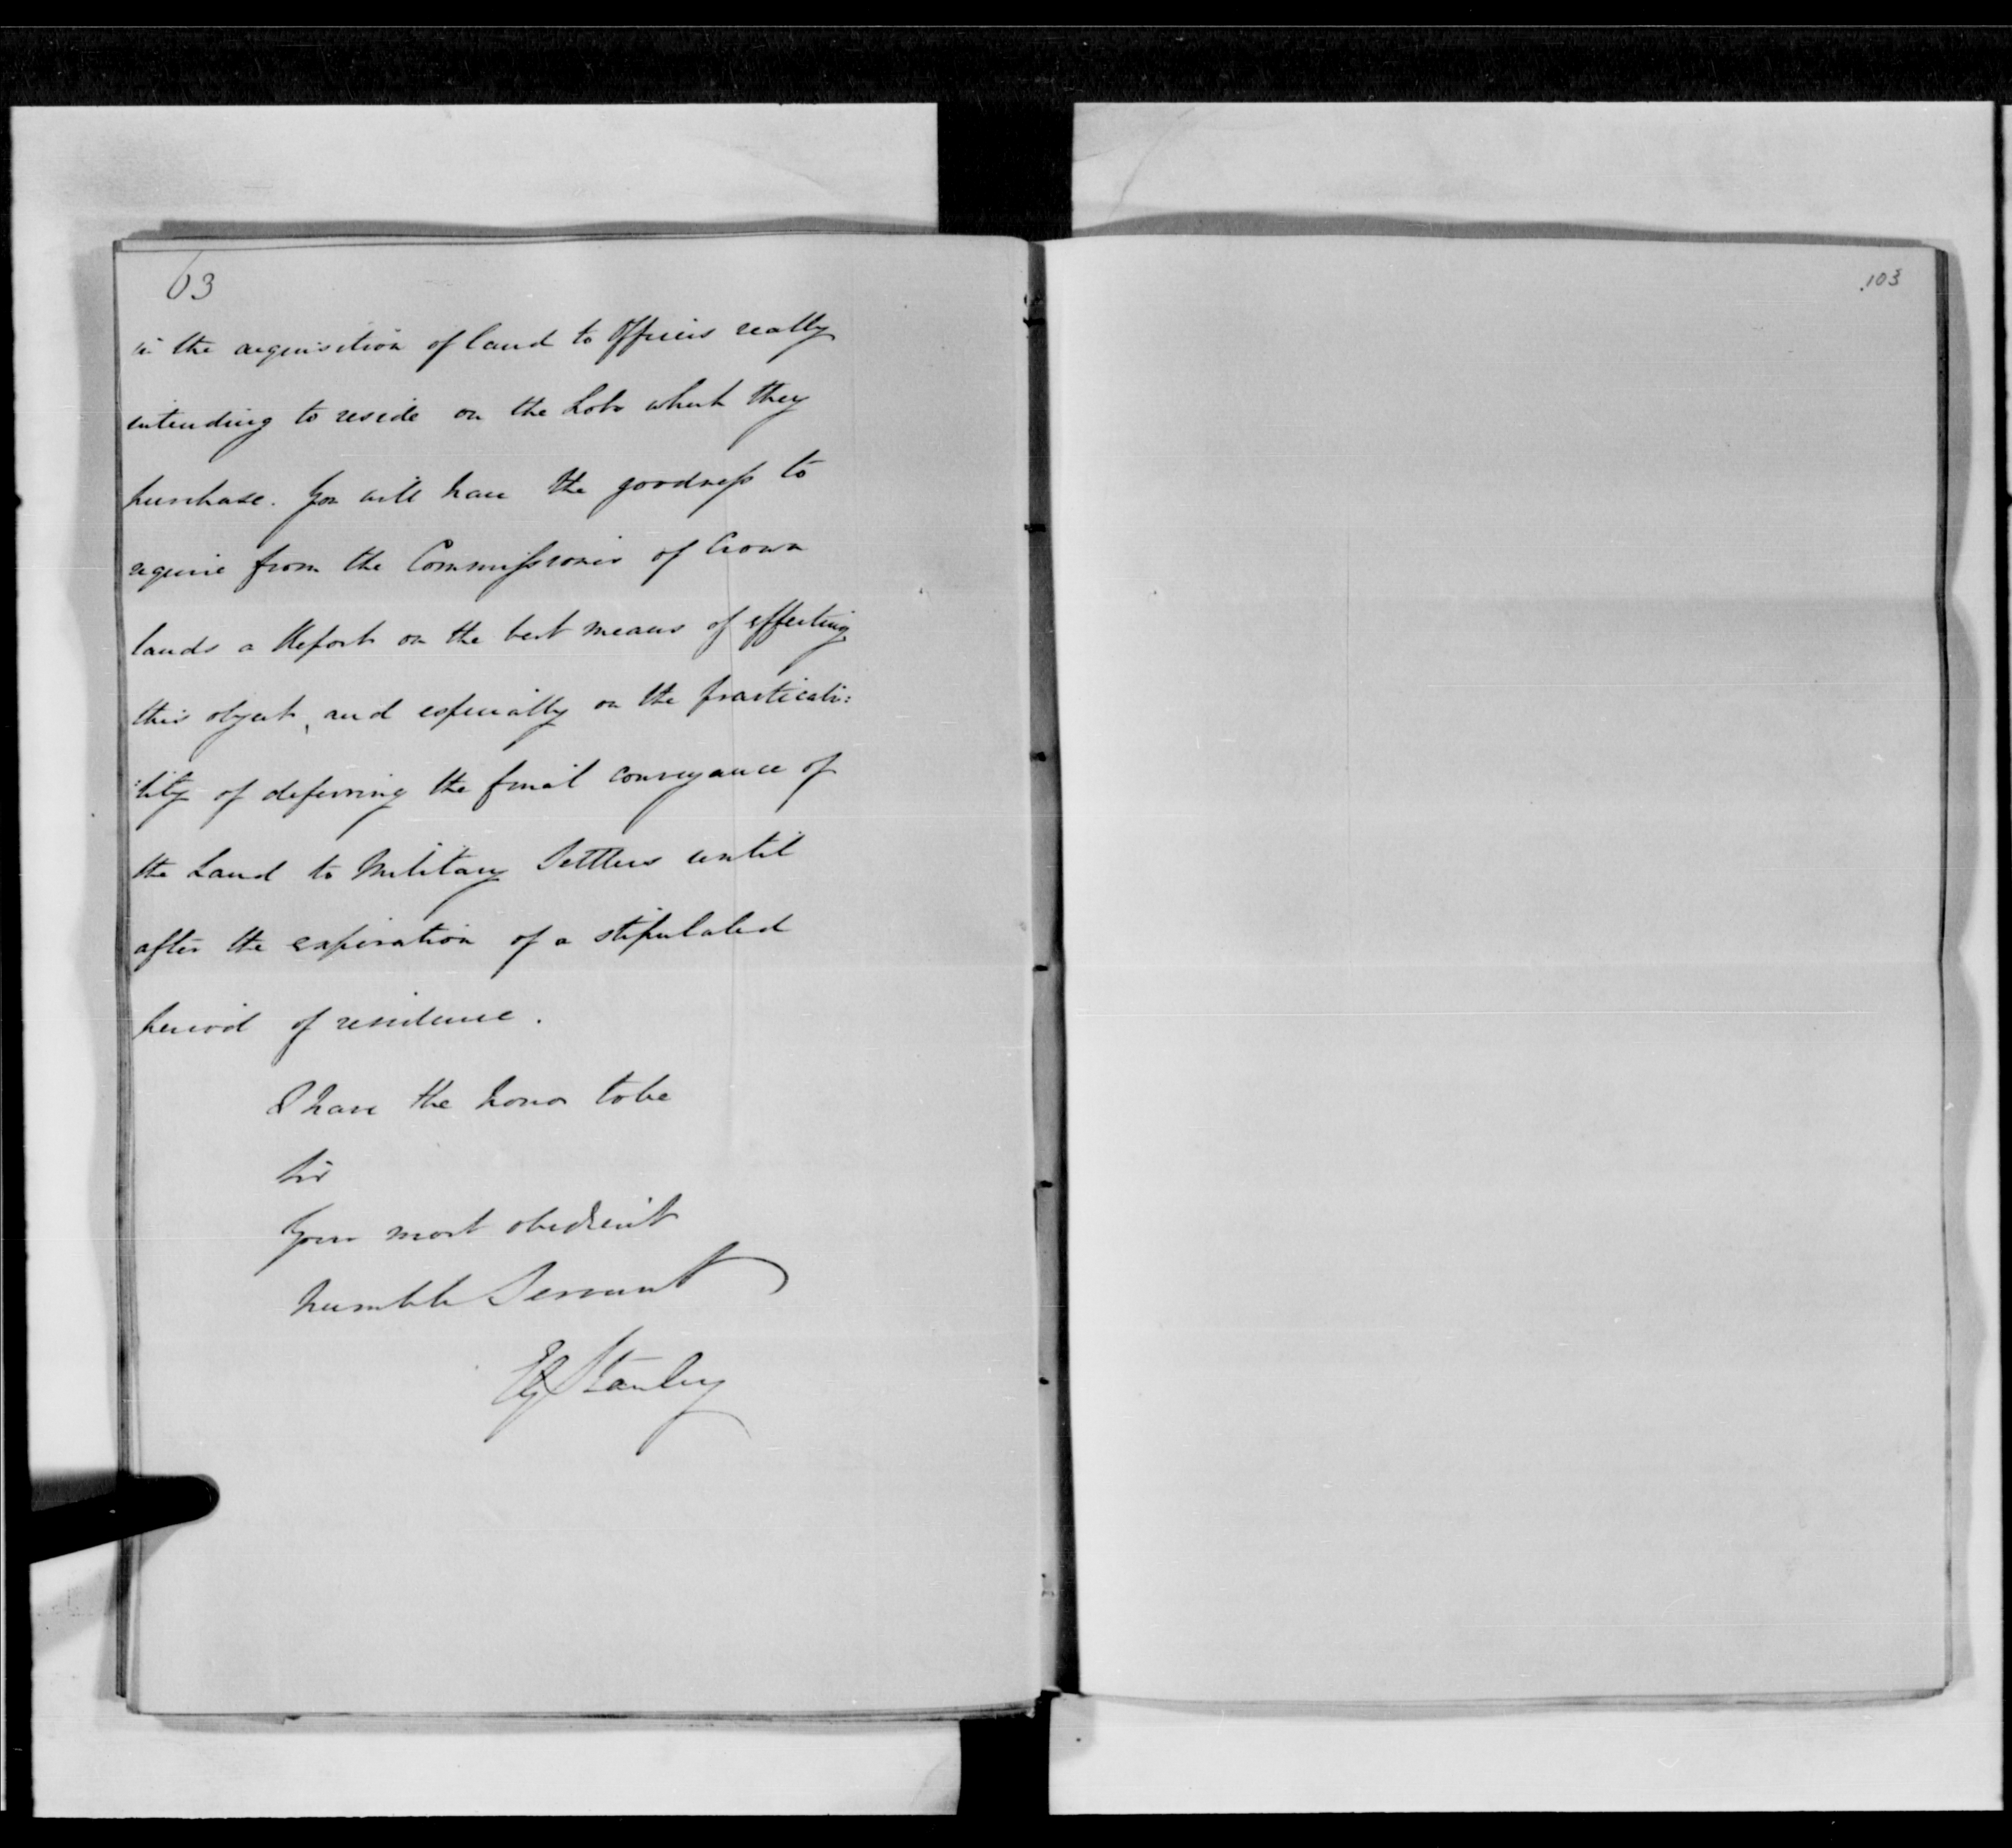 63
in the acquisition of land to Officers really
intending to reside on the Lots which they
purchase. You will have the goodness to
require from the Commissioner of Crown
lands a Report on the best means of effecting
this object, and especially on the practicabi:
:lity of deferring the final conveyance of
the Land to Military Settlers until
after the expiration of a stipulated
period of residence.
I have the honor to be
Sir
Your most obedient
humble Servant
EG Stanley
103